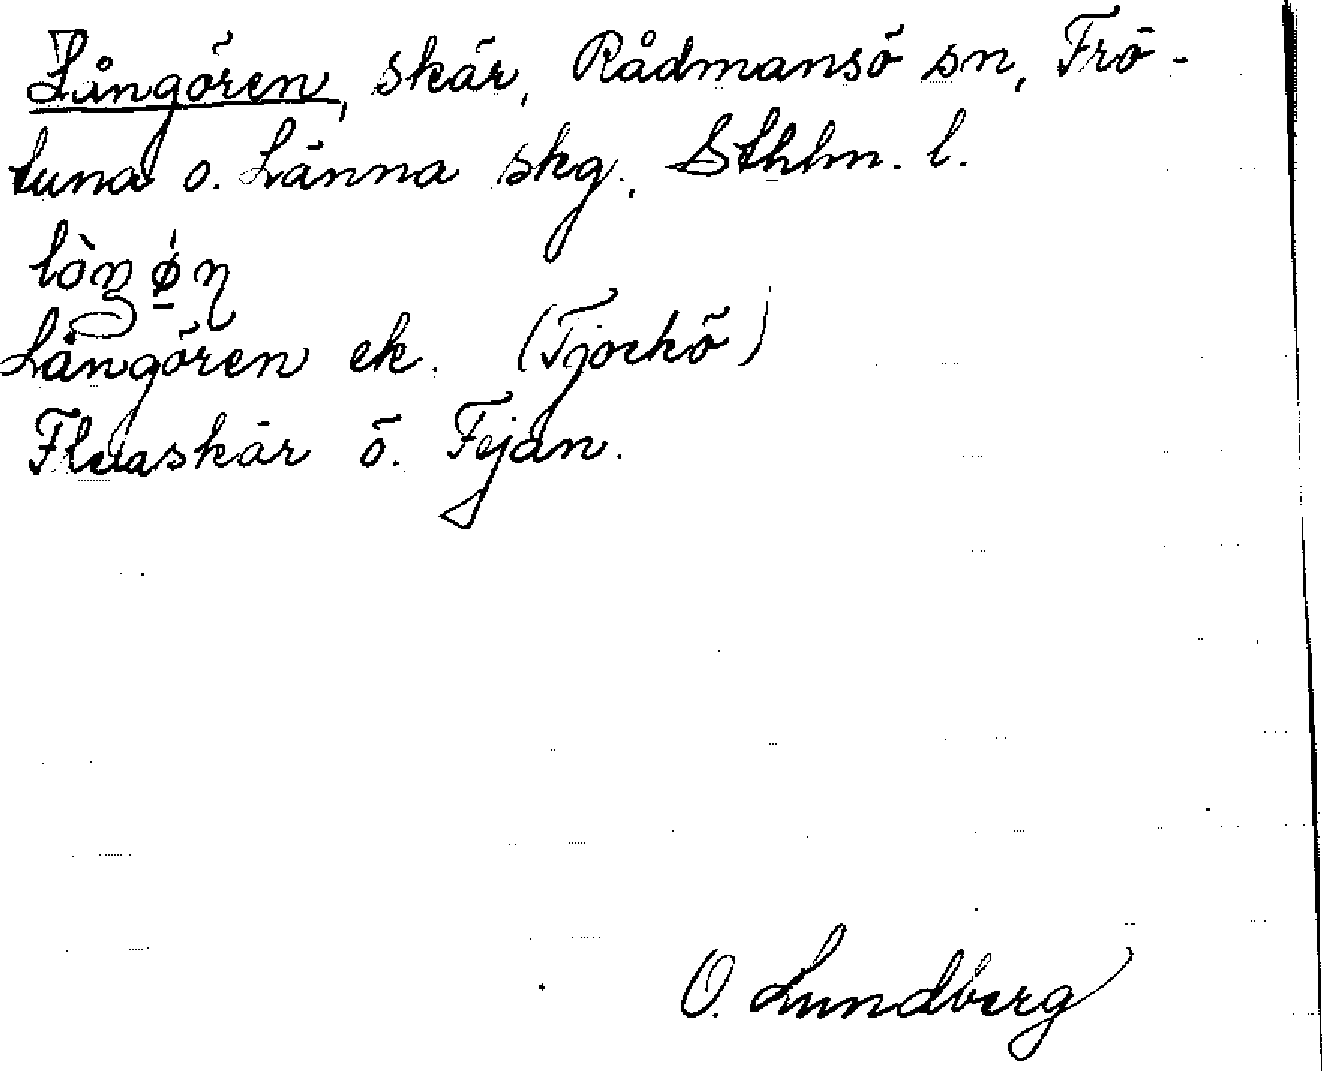 Långören, skär, Rådmansö sn, Frö-
tuna o. Länna skg. Sthlm. l.
Långören ek. (Tjockö)
skär ö. Fejan.
O. Lundberg